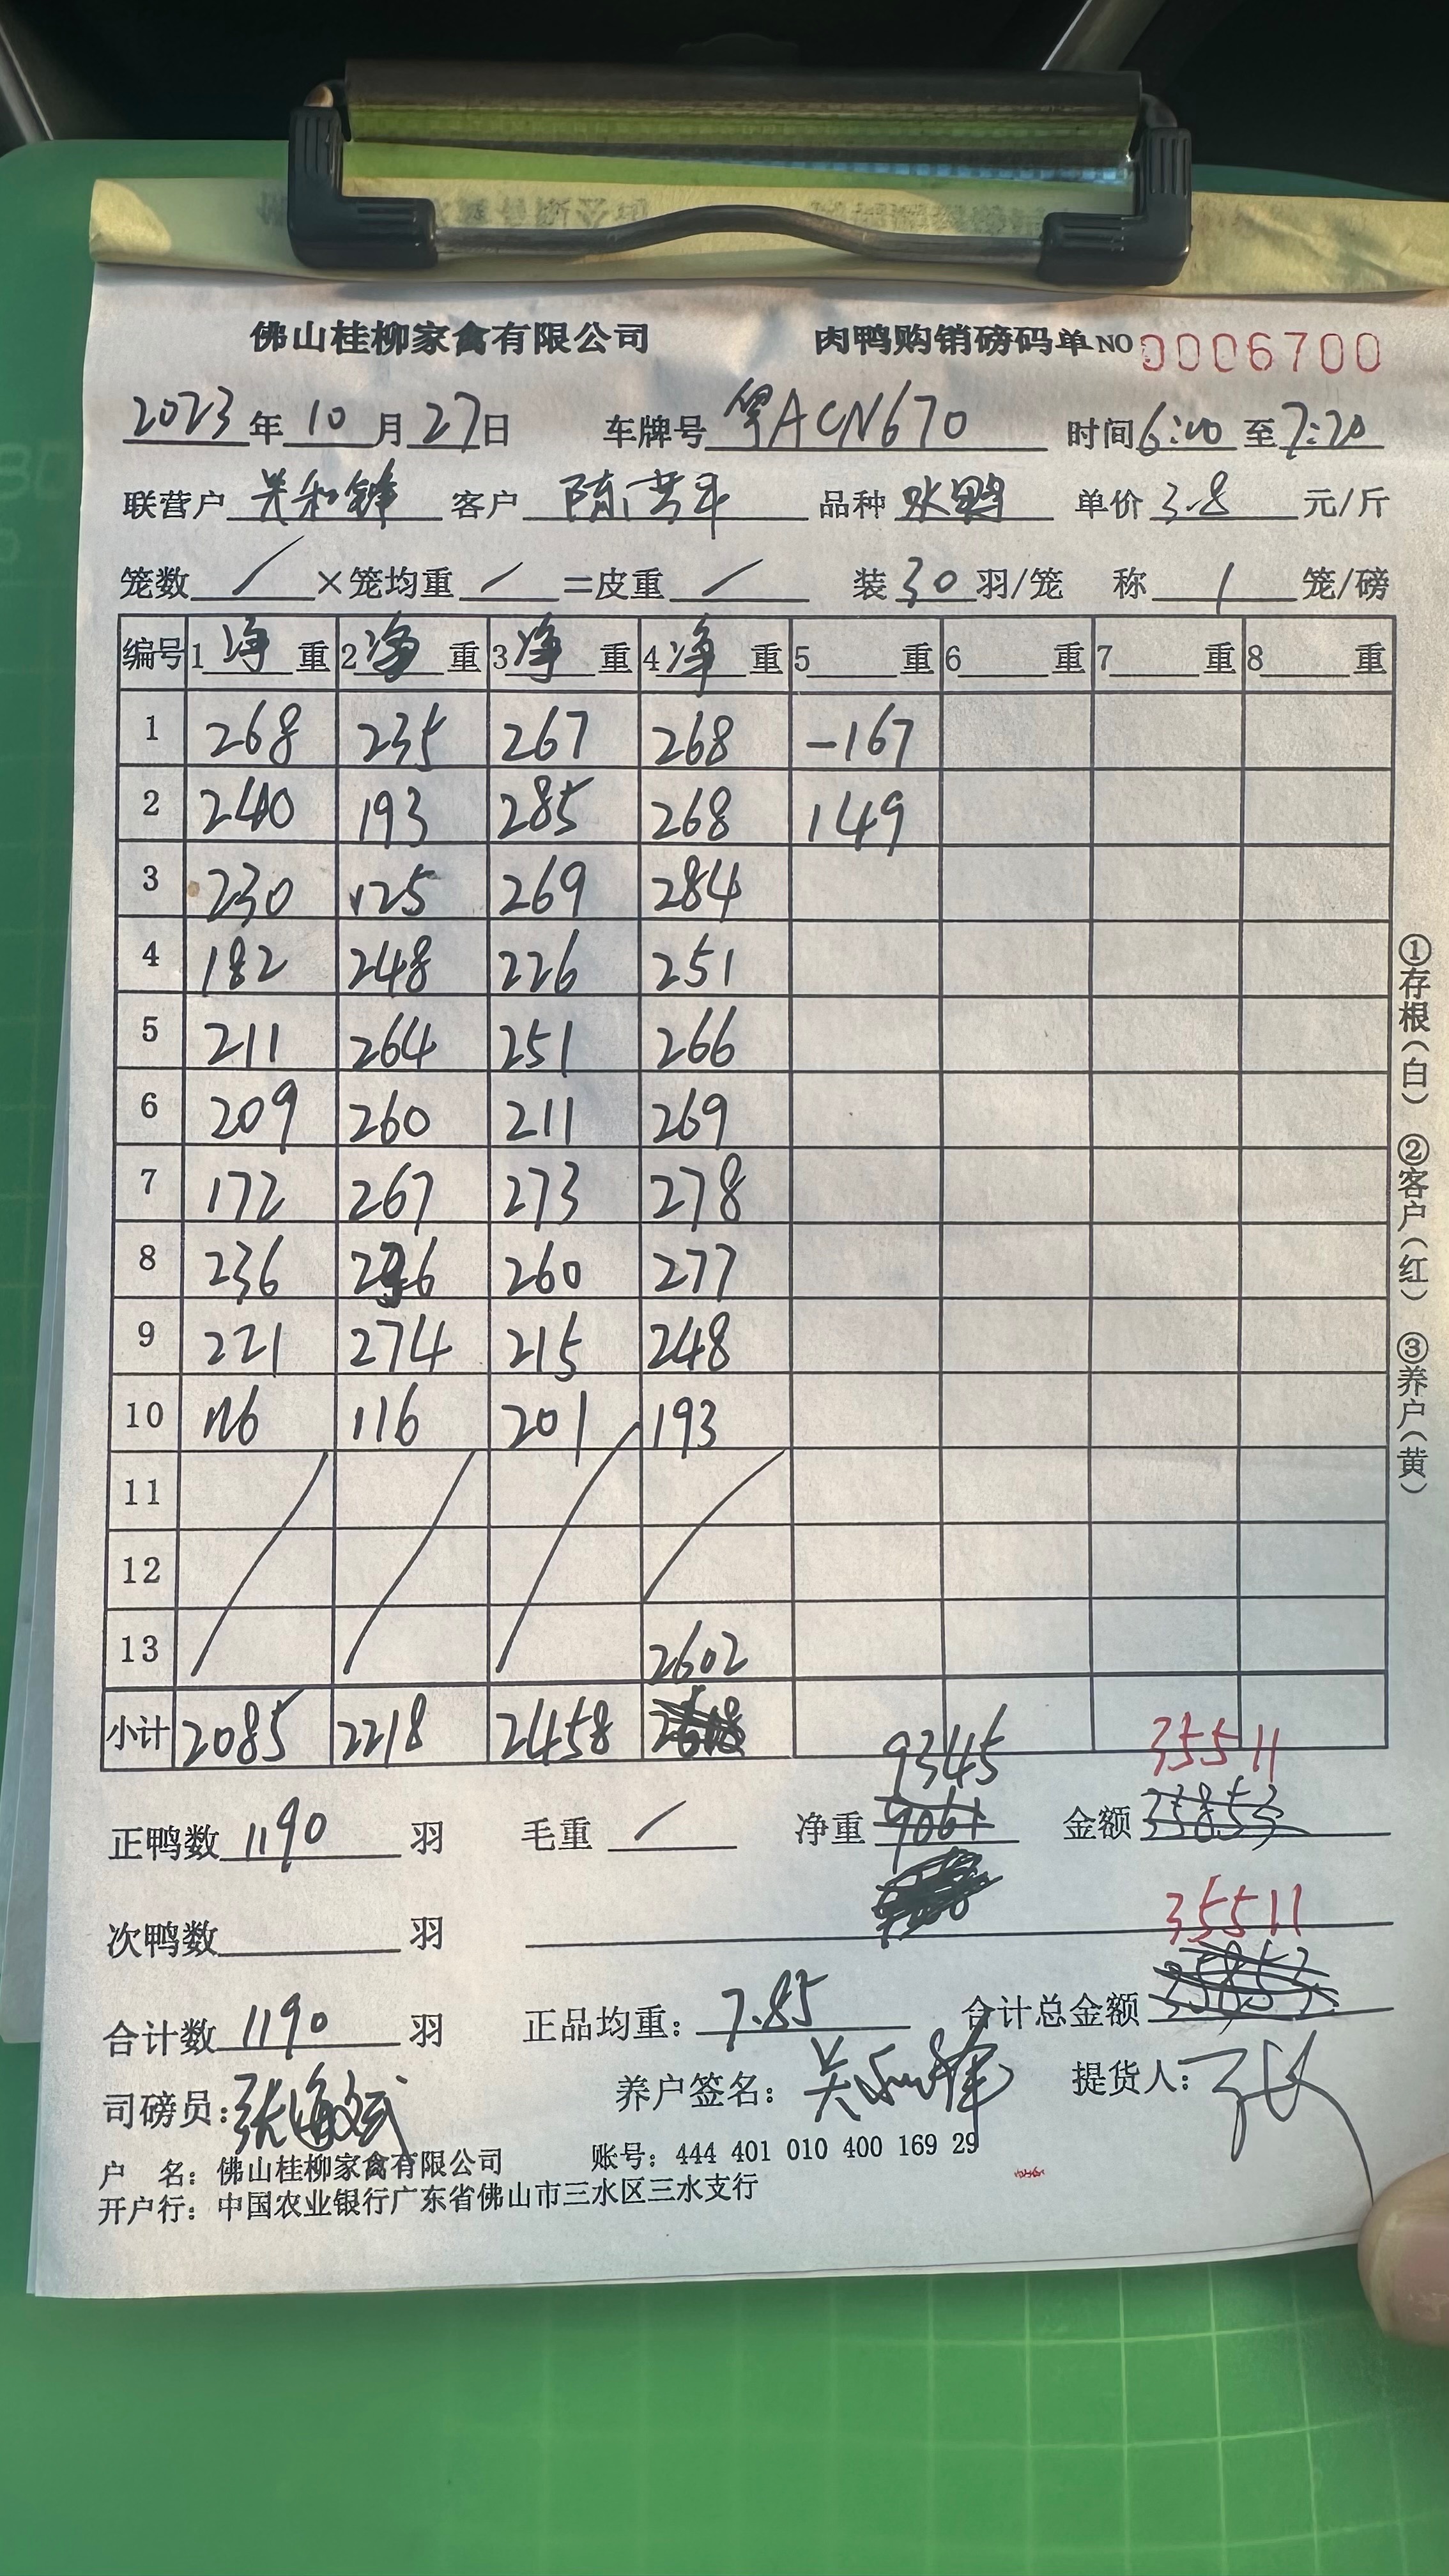 佛山桂柳家禽有限公司 肉鸭购销磅码单 NO 0006700
2023年10月27日 车牌号 粤ACN670 时间 6:00 至 7:20
联营户 关和锋 客户 品种 单价 3.8 元/斤
笼数 / ×笼均重 / =皮重 / 装 30 羽/笼 称 1 笼/磅
编号 1 净 重 2 净 重 3 净 重 4 净 重 5 重 6 重 7 重 8 重
1 268 235 267 268 -167
2 240 193 285 268 149
3 230 125 269 284
4 182 248 226 251
5 211 264 251 266
6 209 260 211 269
7 172 267 273 278
8 236 260 277
9 221 274 215 248
10 116 116 201 193
11
12
13 2602
小计 2085 2218 2458
9345 35511
正鸭数 1190 羽 毛重 / 净重 9061 金额 35853
次鸭数 羽 35511
合计数 1190 羽 正品均重: 7.85 合计总金额
司磅员: 张海斌 养户签名: 关和锋 提货人:
户 名: 佛山桂柳家禽有限公司 账号: 444 401 010 400 169 29
开户行: 中国农业银行广东省佛山市三水区三水支行
①存根(白) ②客户(红) ③养户(黄)